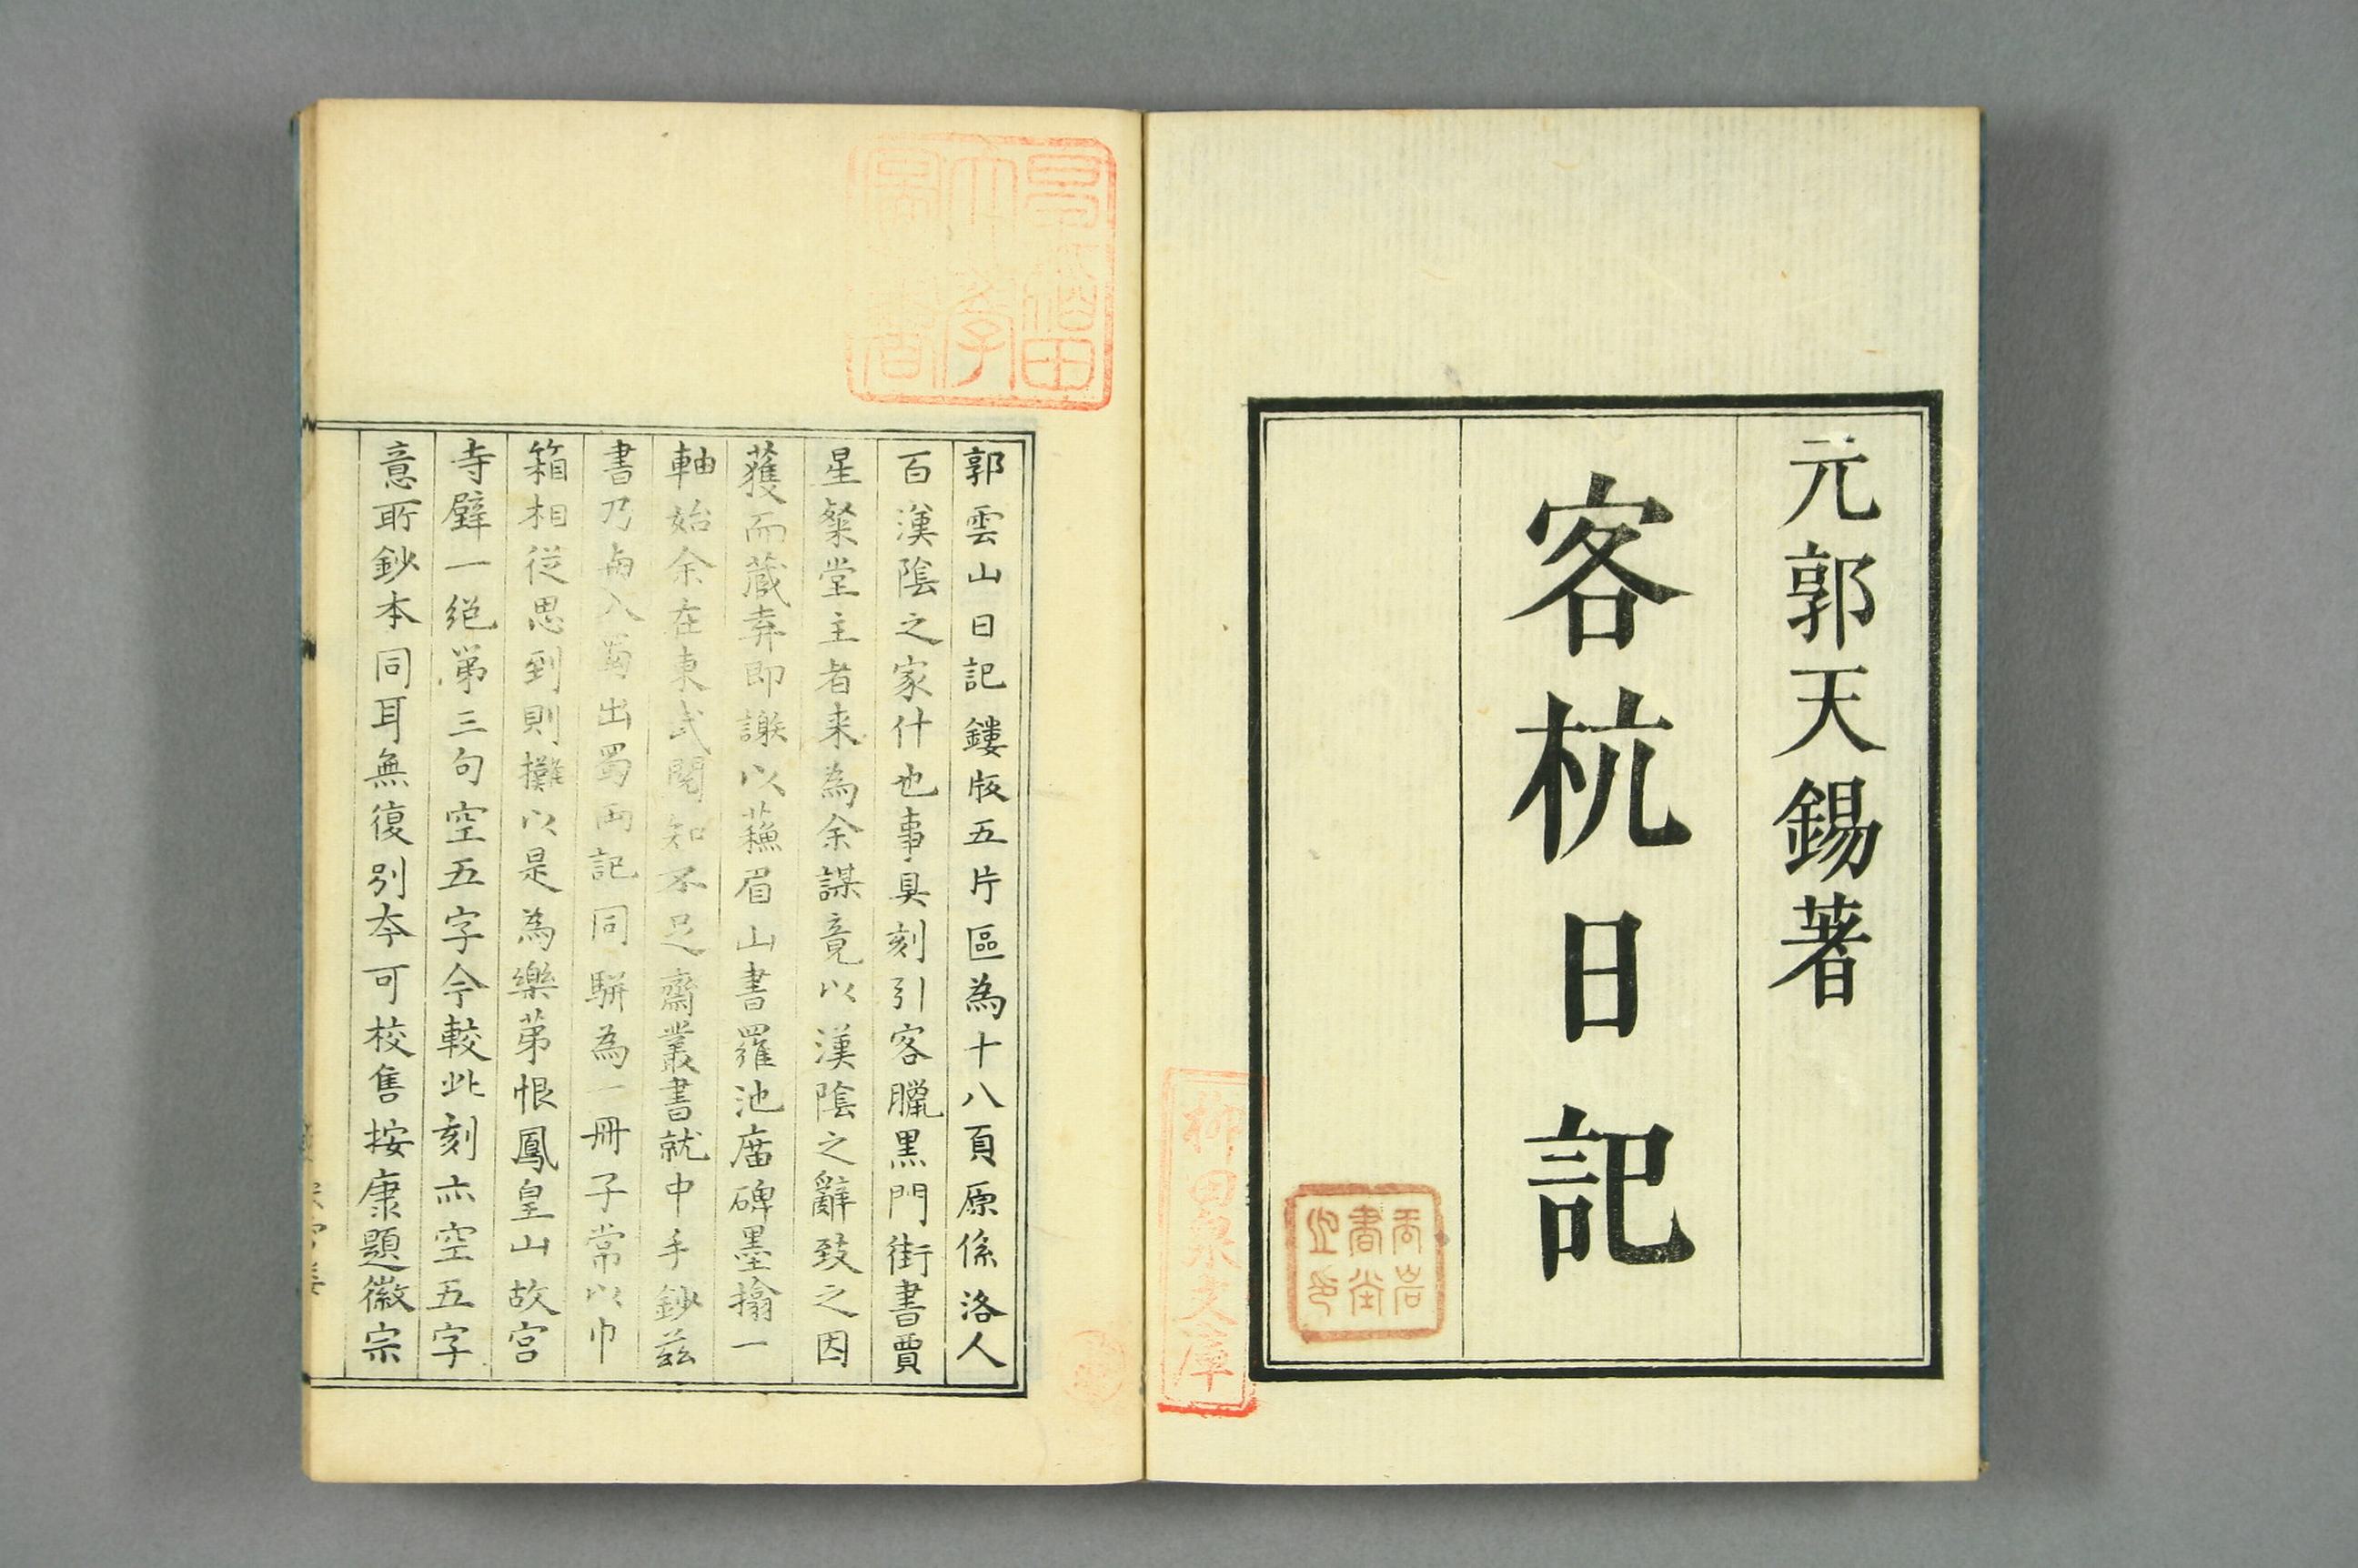 元郭天錫著
客杭日記
柳田泉文庫
早稲田大學圖書
郭雲山日記鏤版五片區為十八頁原係洛人
百漢陰之家什也事具刻引客臘黒門街書賈
星粲堂主者来為余謀竟以漢陰之辭致之因
獲而蔵弆即謝以蘓眉山書羅池庿碑墨搨一
軸始余在東武閲知不足齋叢書就中手鈔茲
書乃与入蜀出蜀両記同駢為一冊子常以巾
箱相從思到則攤以是為樂苐恨鳳皇山故宮
寺壁一絶苐三句空五字今較此刻亦空五字
意所鈔本同耳無復別夲可校售按康題徽宗